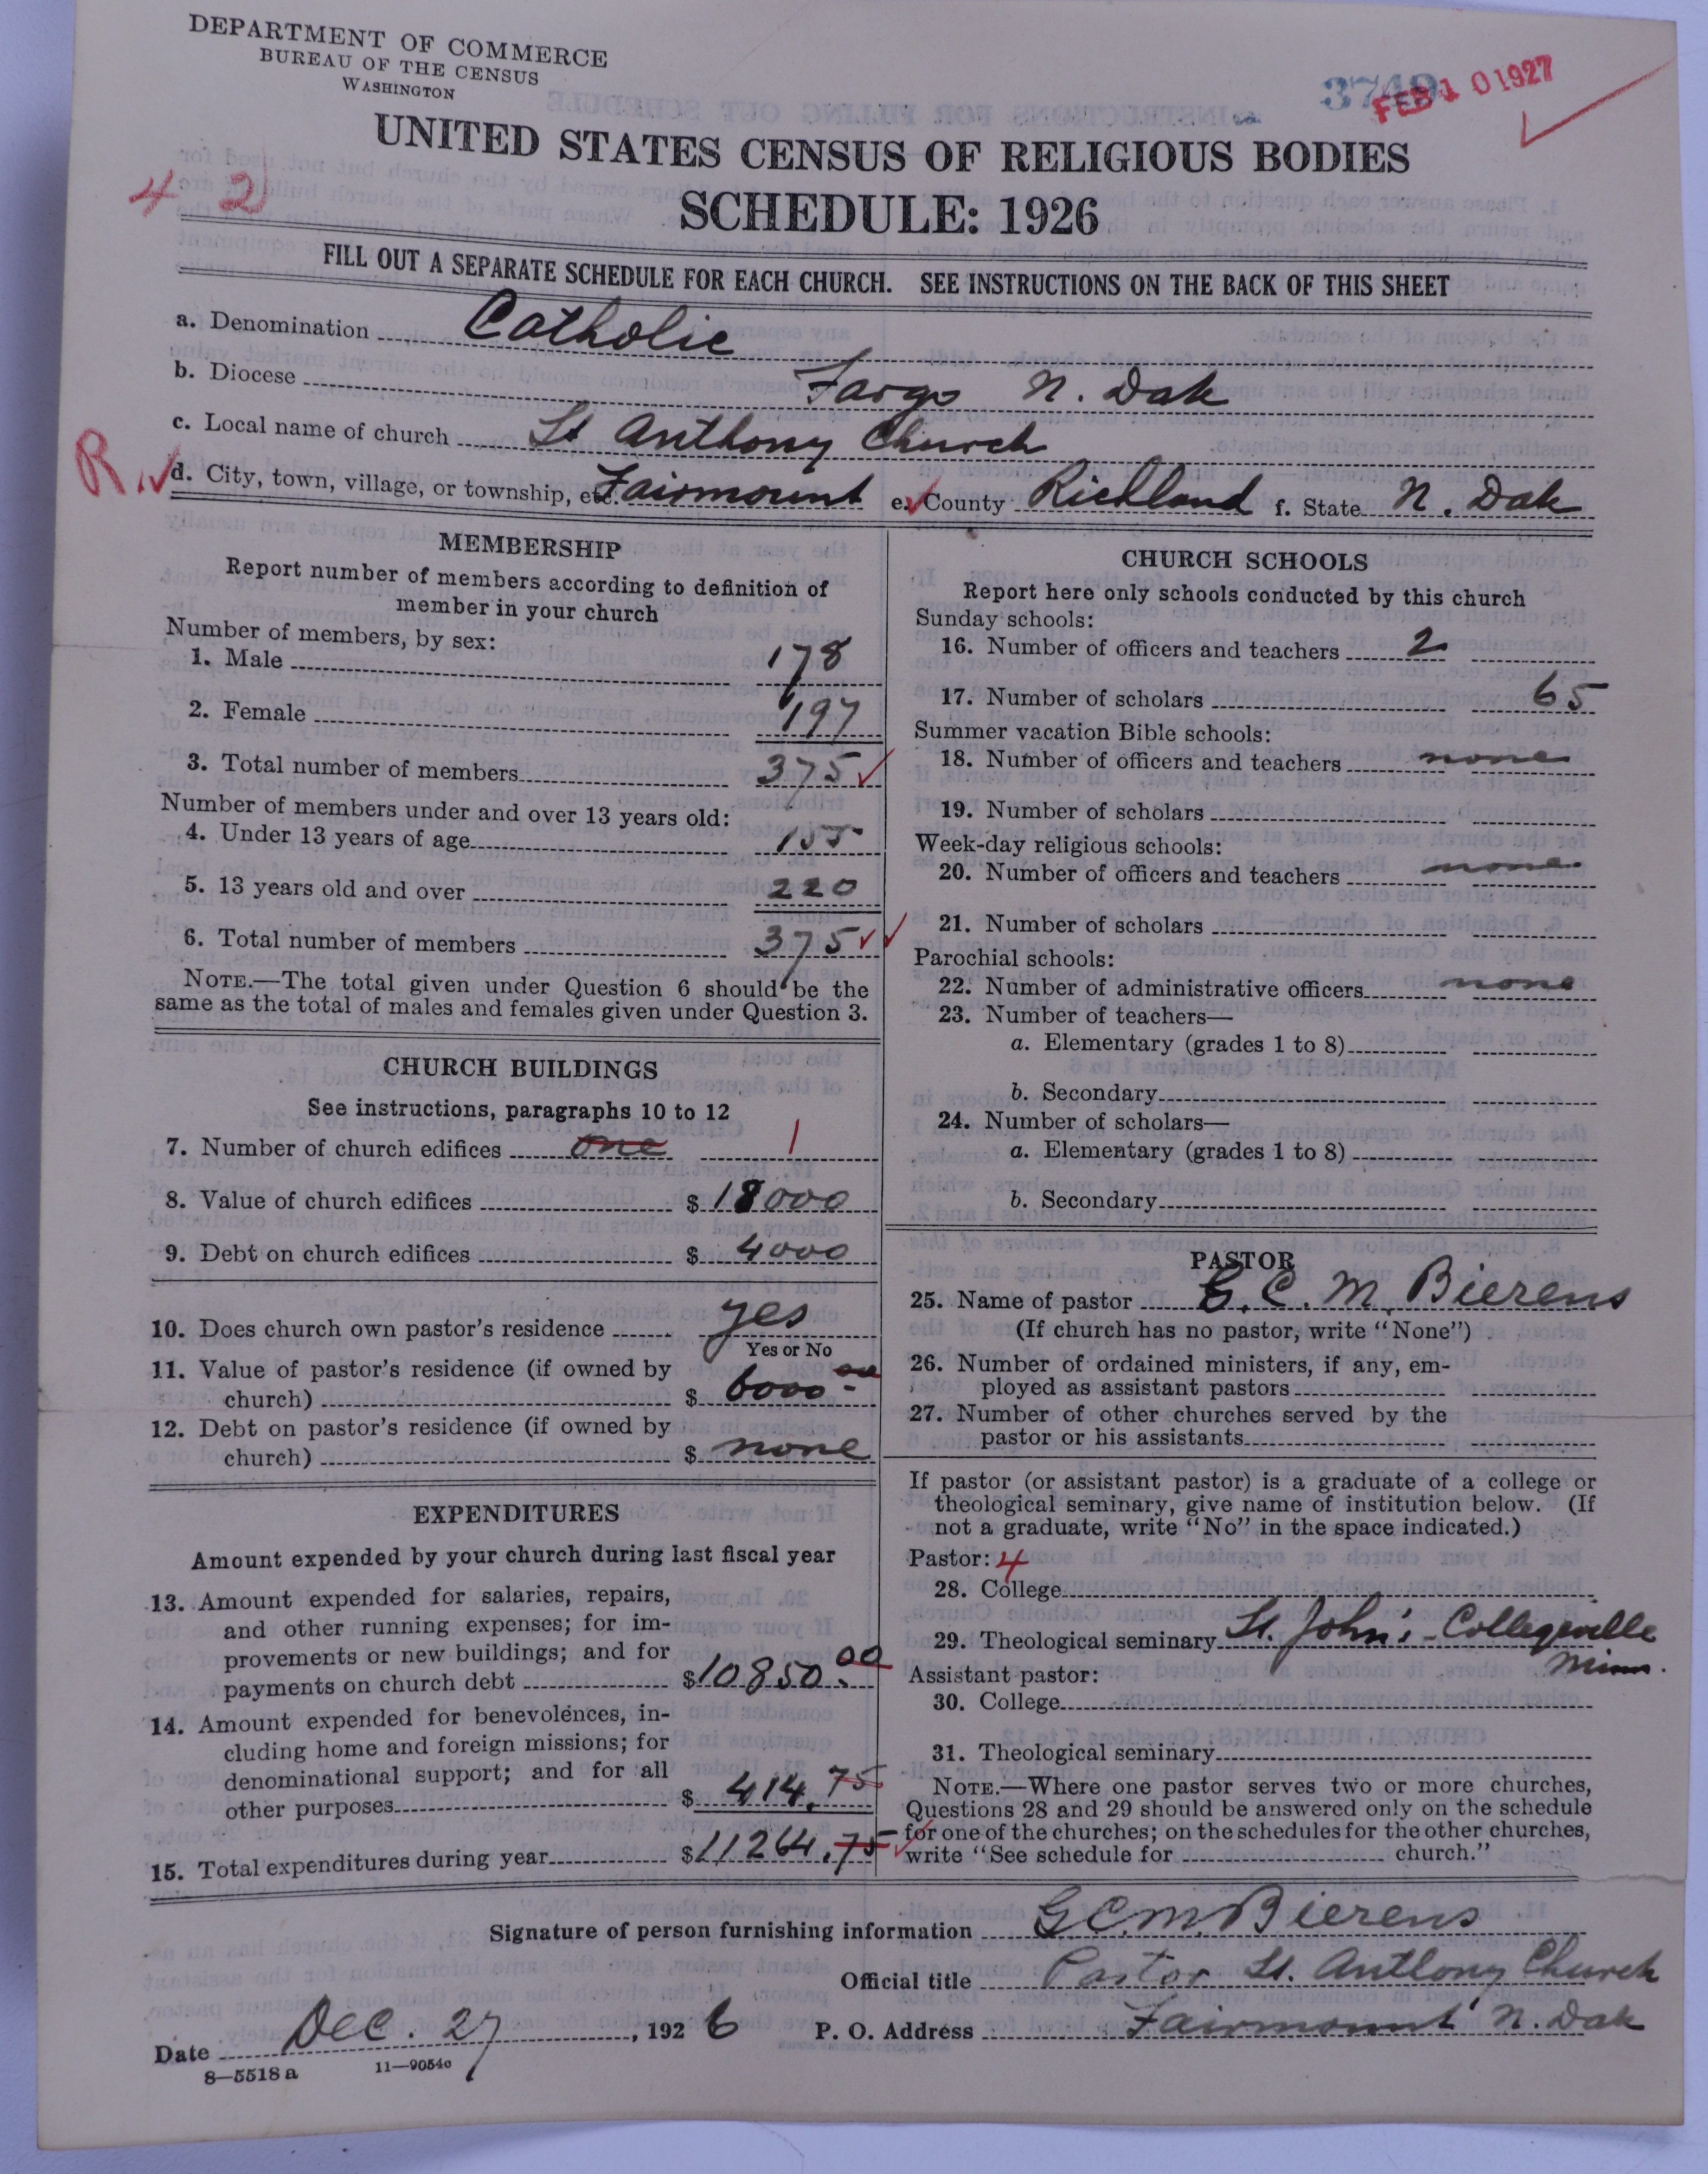 DEPARTMENT OF COMMERCE
BUREAU OF THE CENSUS
WASHINGTON
3749
FEB 10 1927
UNITED STATES CENSUS OF RELIGIOUS BODIES
4 2
SCHEDULE: 1926
FILL OUT A SEPARATE SCHEDULE FOR EACH CHURCH. SEE INSTRUCTIONS ON THE BACK OF THIS SHEET
a. Denomination Catholic
b. Diocese Fargo N. Dak
c. Local name of church St Anthony Church
R. d. City, town, village, or township, etc. Fairmount e. County Richland f. State N. Dak
MEMBERSHIP
Report number of members according to definition of
member in your church
Number of members, by sex:
1. Male 178
2. Female 197
3. Total number of members 375
Number of members under and over 13 years old:
4. Under 13 years of age 155
5. 13 years old and over 220
6. Total number of members 375
NOTE.—The total given under Question 6 should be the
same as the total of males and females given under Question 3.
CHURCH BUILDINGS
See instructions, paragraphs 10 to 12
7. Number of church edifices one 1
8. Value of church edifices $ 18000
9. Debt on church edifices $ 4000
10. Does church own pastor's residence yes
Yes or No
11. Value of pastor's residence (if owned by
church) $ 6000
12. Debt on pastor's residence (if owned by
church) $ none
EXPENDITURES
Amount expended by your church during last fiscal year
13. Amount expended for salaries, repairs,
and other running expenses; for im-
provements or new buildings; and for
payments on church debt $10850.00
14. Amount expended for benevolences, in-
cluding home and foreign missions; for
denominational support; and for all
other purposes $ 414.75
15. Total expenditures during year $11264.75
CHURCH SCHOOLS
Report here only schools conducted by this church
Sunday schools:
16. Number of officers and teachers 2
17. Number of scholars 65
Summer vacation Bible schools:
18. Number of officers and teachers none
19. Number of scholars
Week-day religious schools:
20. Number of officers and teachers none
21. Number of scholars
Parochial schools:
22. Number of administrative officers none
23. Number of teachers—
a. Elementary (grades 1 to 8)
b. Secondary
24. Number of scholars—
a. Elementary (grades 1 to 8)
b. Secondary
PASTOR
25. Name of pastor G. C. M. Bierens
(If church has no pastor, write "None")
26. Number of ordained ministers, if any, em-
ployed as assistant pastors
27. Number of other churches served by the
pastor or his assistants
If pastor (or assistant pastor) is a graduate of a college or
theological seminary, give name of institution below. (If
not a graduate, write "No" in the space indicated.)
Pastor: 4
28. College
29. Theological seminary St. John's - Collegeville
Minn.
Assistant pastor:
30. College
31. Theological seminary
NOTE.—Where one pastor serves two or more churches,
Questions 28 and 29 should be answered only on the schedule
for one of the churches; on the schedules for the other churches,
write "See schedule for church."
Signature of person furnishing information G.C.M. Bierens
Official title Pastor St. Anthony Church
Date Dec. 27, 1926 P. O. Address Fairmount N. Dak
8—5518 a 11—9054c